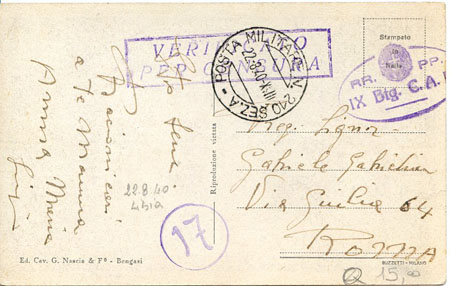 VERIFICATO
PER CENSURA
POSTA MILITARE N. 240 SEZ. A
22.8.40.XVIII
Stampato
in
Italia
RR. PP.
IX Btg. C.A.
Bacioni cari
a te Mamma
Anna Maria
22.8.40
Libia
17
Riproduzione vietata
Gabriele Gabrielini
Via Giulia 64
Roma
Ed. Cav. G. Nascia & Fº - Bengasi
BUZZETTI - MILANO
15,00